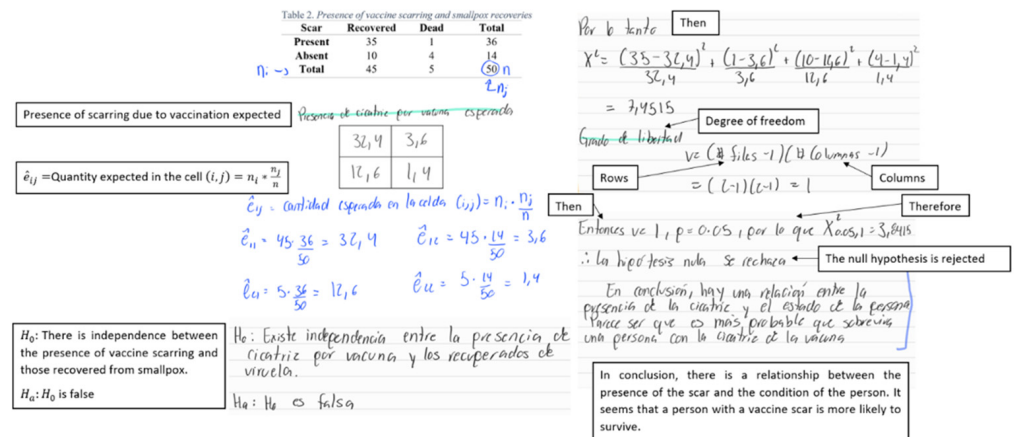 Table 2. Presence of vaccine scarring and smallpox recoveries
Scar Recovered Dead Total
Present 35 1 36
Absent 10 4 14
ni → Total 45 5 50 n
nj
Presence of scarring due to vaccination expected
Presencia de cicatriz por vacuna esperada
32,4 3,6
12,6 1,4
êij =Quantity expected in the cell (i,j) = ni * nj/n
êij = cantidad esperada en la celda (i,j) = ni · nj/n
ê11 = 45·36/50 = 32,4 ê12 = 45·14/50 = 3,6
ê21 = 5·36/50 = 12,6 ê22 = 5·14/50 = 1,4
H0: There is independence between
the presence of vaccine scarring and
those recovered from smallpox.
Ha: H0 is false
Ho: Existe independencia entre la presencia de
cicatriz por vacuna y los recuperados de
viruela.
Ha: Ho es falsa
Por lo tanto
Then
X² = (35-32,4)²/32,4 + (1-3,6)²/3,6 + (10-12,6)²/12,6 + (4-1,4)²/1,4
= 7,4515
Degree of freedom
Grado de libertad
v= (# filas -1)(# Columnas -1)
Rows
Columns
= (2-1)(2-1) = 1
Then
Therefore
Entonces v= 1, p= 0.05, por lo que X²0.05,1 = 3,8415
∴ La hipótesis nula se rechaza
The null hypothesis is rejected
En conclusión, hay una relación entre la
presencia de la cicatriz y el estado de la persona
Parece ser que es más probable que sobreviva
una persona con la cicatriz de la vacuna
In conclusion, there is a relationship between the
presence of the scar and the condition of the person. It
seems that a person with a vaccine scar is more likely to
survive.